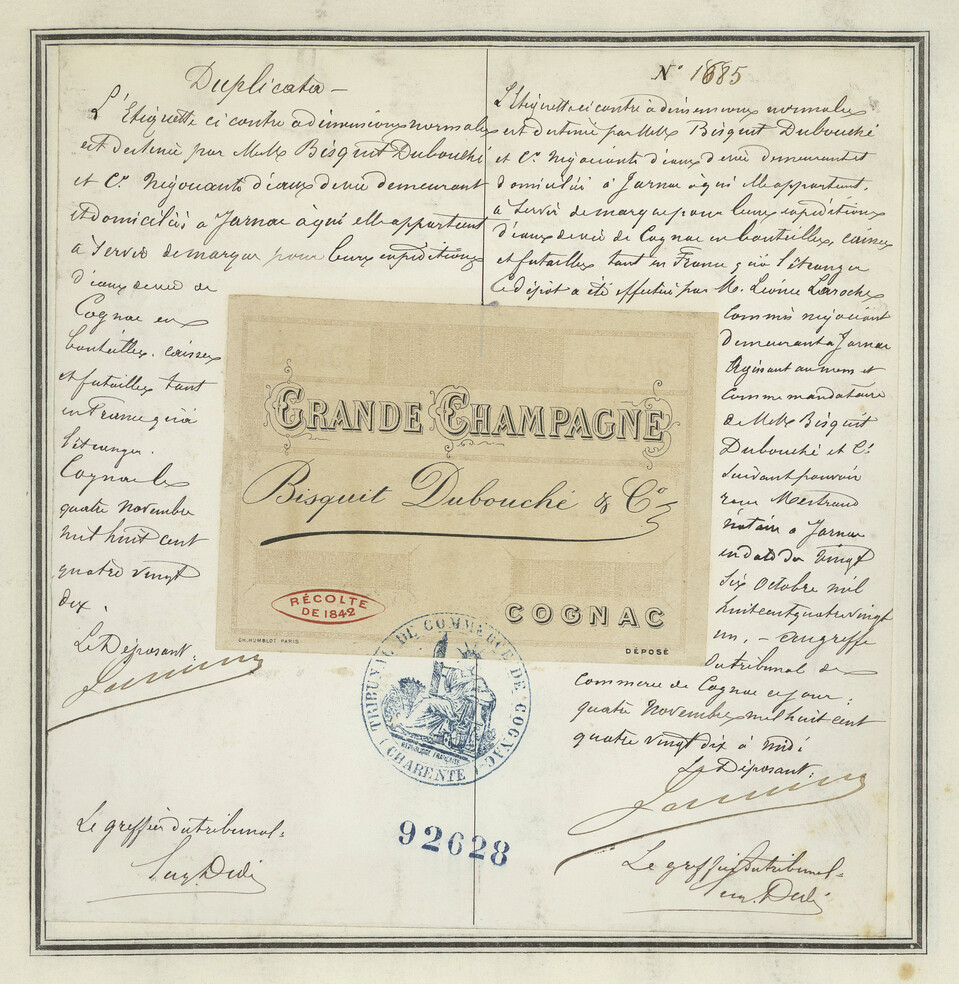 Duplicata —
L'Etiquette ci contre à dimensions normales
est destinée par MM. Bisquit Dubouché
et Cie Négociants d'eaux de vie demeurant
et domiciliés à Jarnac à qui elle appartient
à servir de marque pour leurs expéditions
d'eaux de vie de
Cognac en
bouteilles, caisses
et futailles tant
en France qu'à
l'étranger.
Cognac le
quatre Novembre
mil huit cent
quatre vingt
dix.
Le Déposant.
Le greffier du tribunal.
N° 1685
L'Etiquette ci contre à dimensions normales
est destinée par MM. Bisquit Dubouché
et Cie Négociants d'eaux de vie demeurant et
domiciliés à Jarnac à qui elle appartient,
à servir de marque pour leurs expéditions
d'eaux de vie de Cognac en bouteilles, caisses
et futailles tant en France qu'à l'étranger
Ce dépôt a été effectué par M. Léonce Laroche
Commis négociant
demeurant à Jarnac
Agissant au nom et
comme mandataire
de MM. Bisquit
Dubouché et Cie
suivant pouvoir
notaire à Jarnac
en date du vingt
six Octobre mil
huit cent quatre vingt
un, — au greffe
du tribunal de
commerce de Cognac ce jour
quatre Novembre mil huit cent
quatre vingt dix à midi
Le Déposant.
Le greffier du tribunal.
GRANDE CHAMPAGNE
Bisquit Dubouché & Co
RÉCOLTE
DE 1842
COGNAC
CH. HUMBLOT PARIS
DÉPOSÉ
TRIBUNAL DE COMMERCE DE COGNAC
RÉPUBLIQUE FRANÇAISE
(CHARENTE)
92628